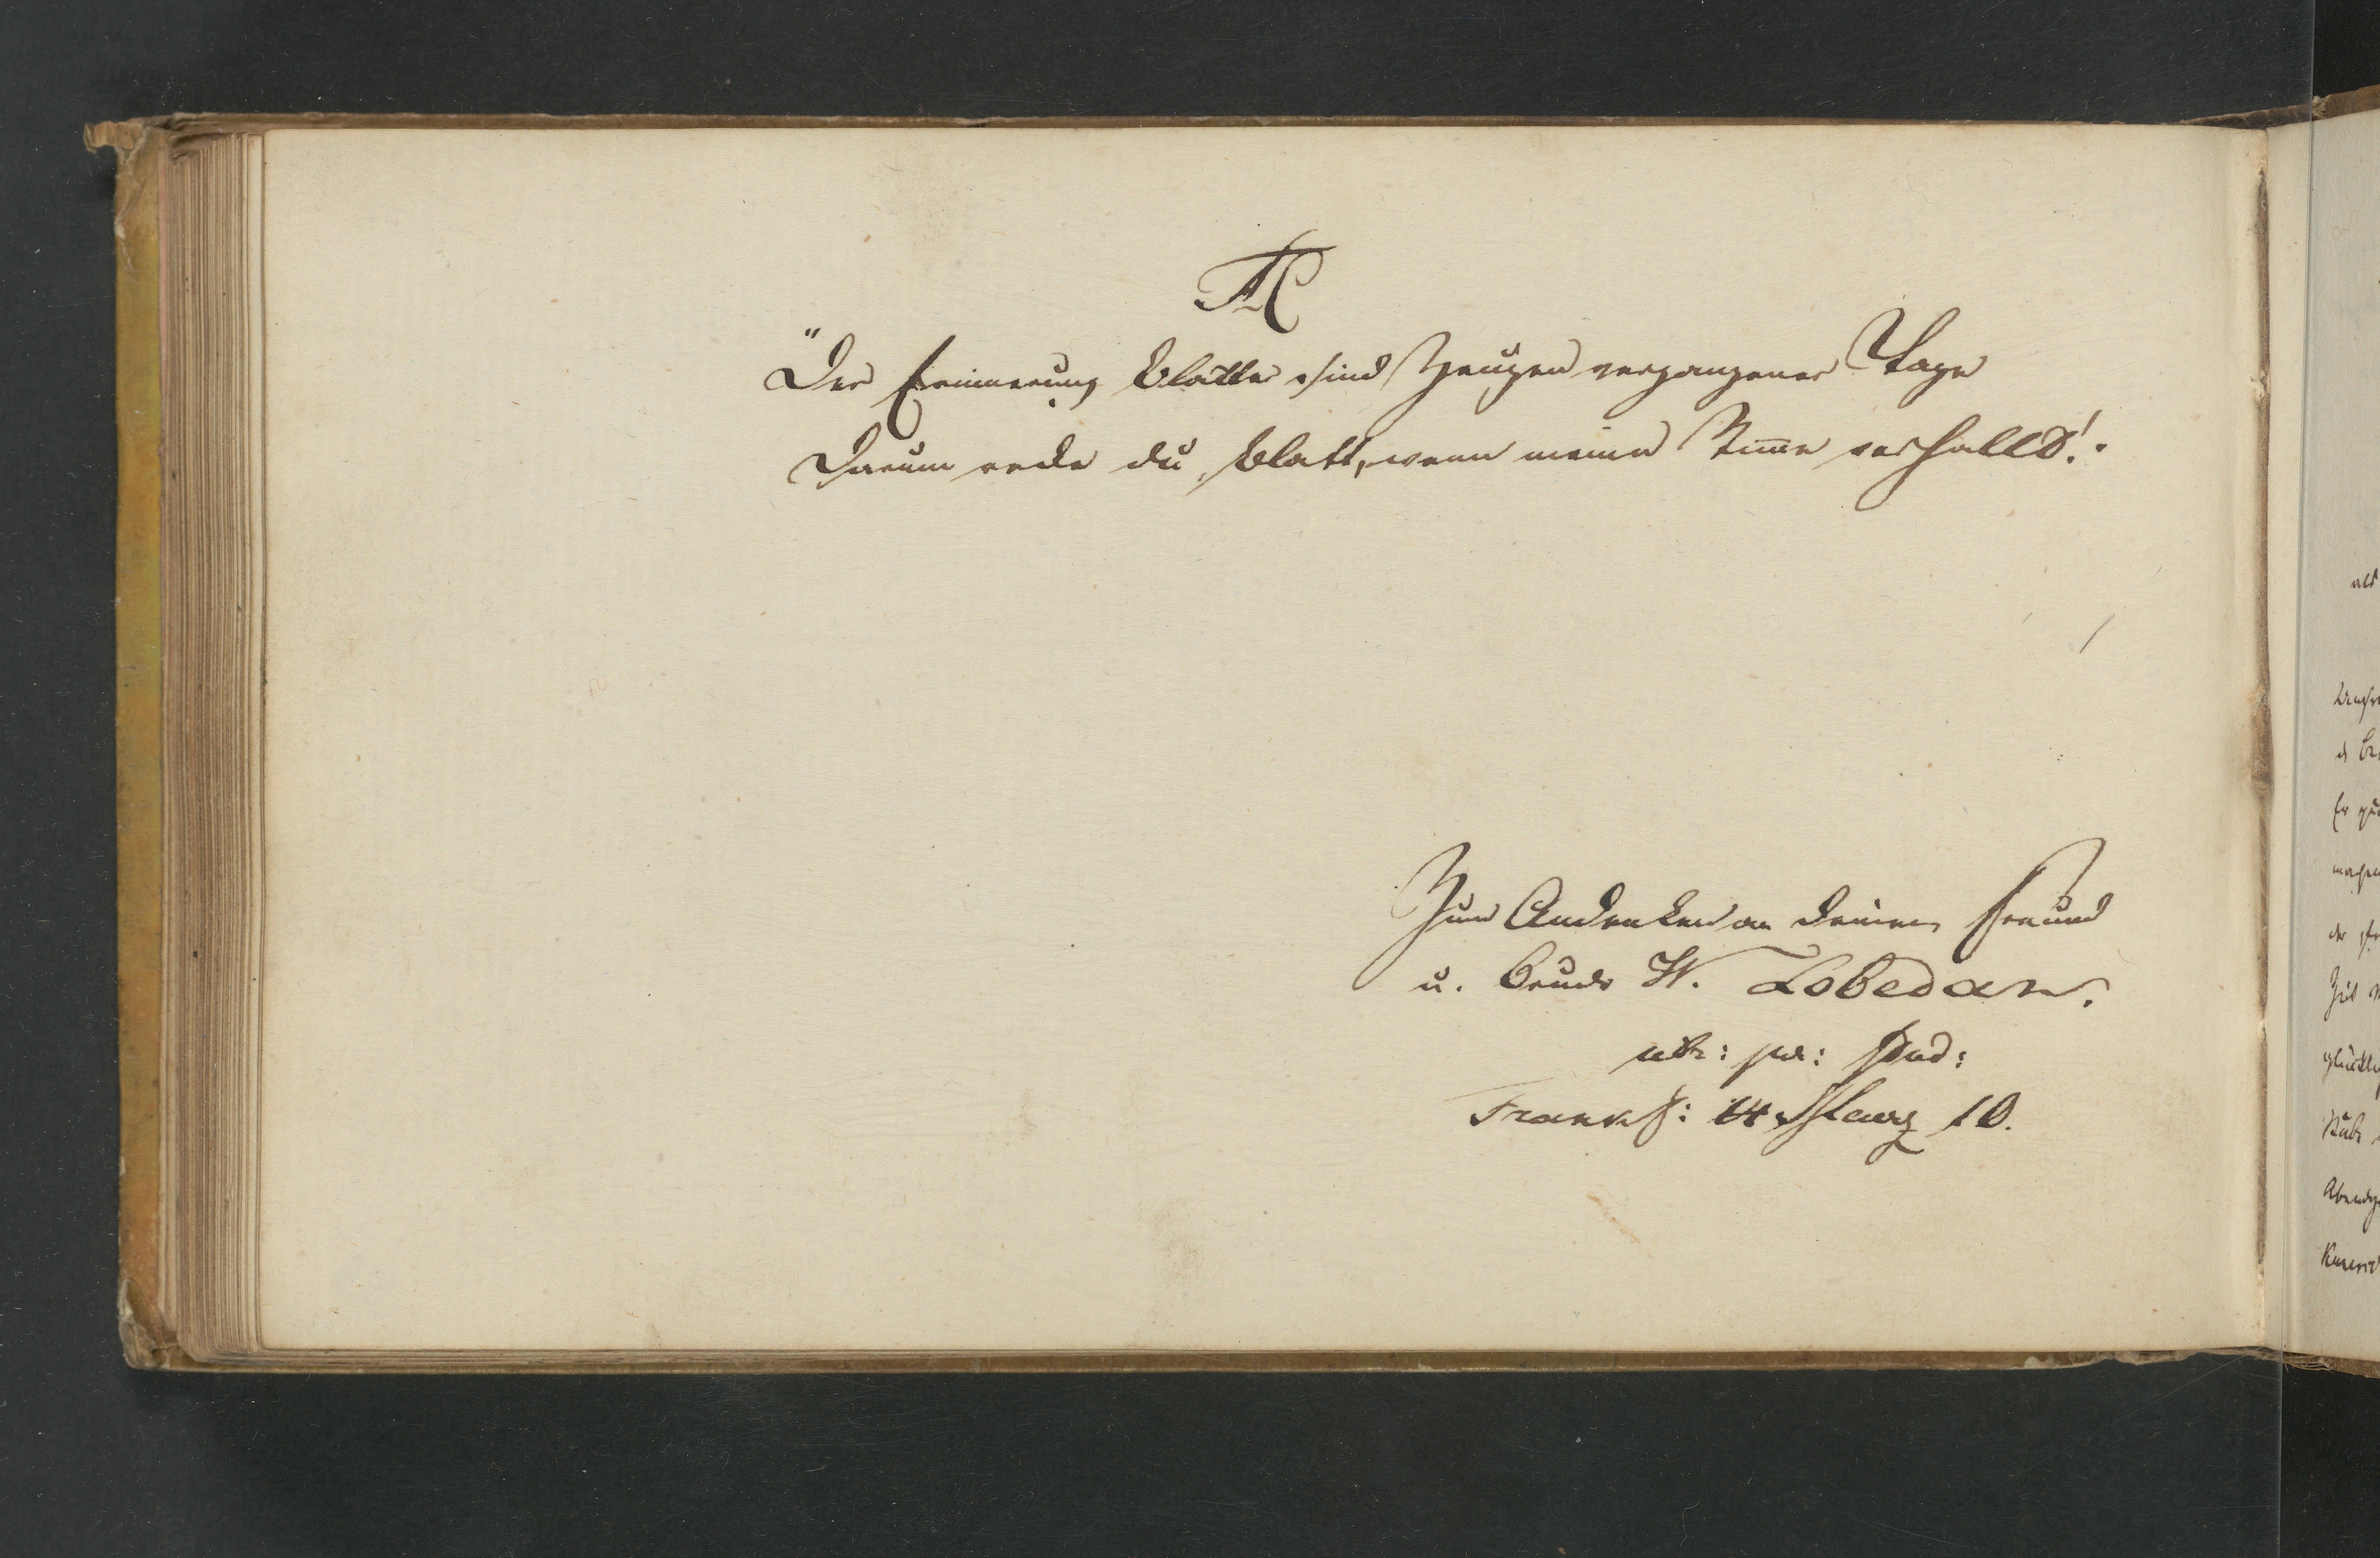 "Der Erinnerung Blätter sind Zeugen vergangener Tage
Darum rede du Blatt, wenn meine Stim̅e verhallt!.
Zum Andenken an deinen Freund
u. Bruder W. Lobedan.
utr: jur: stud:
Frankf: 14 März 10.